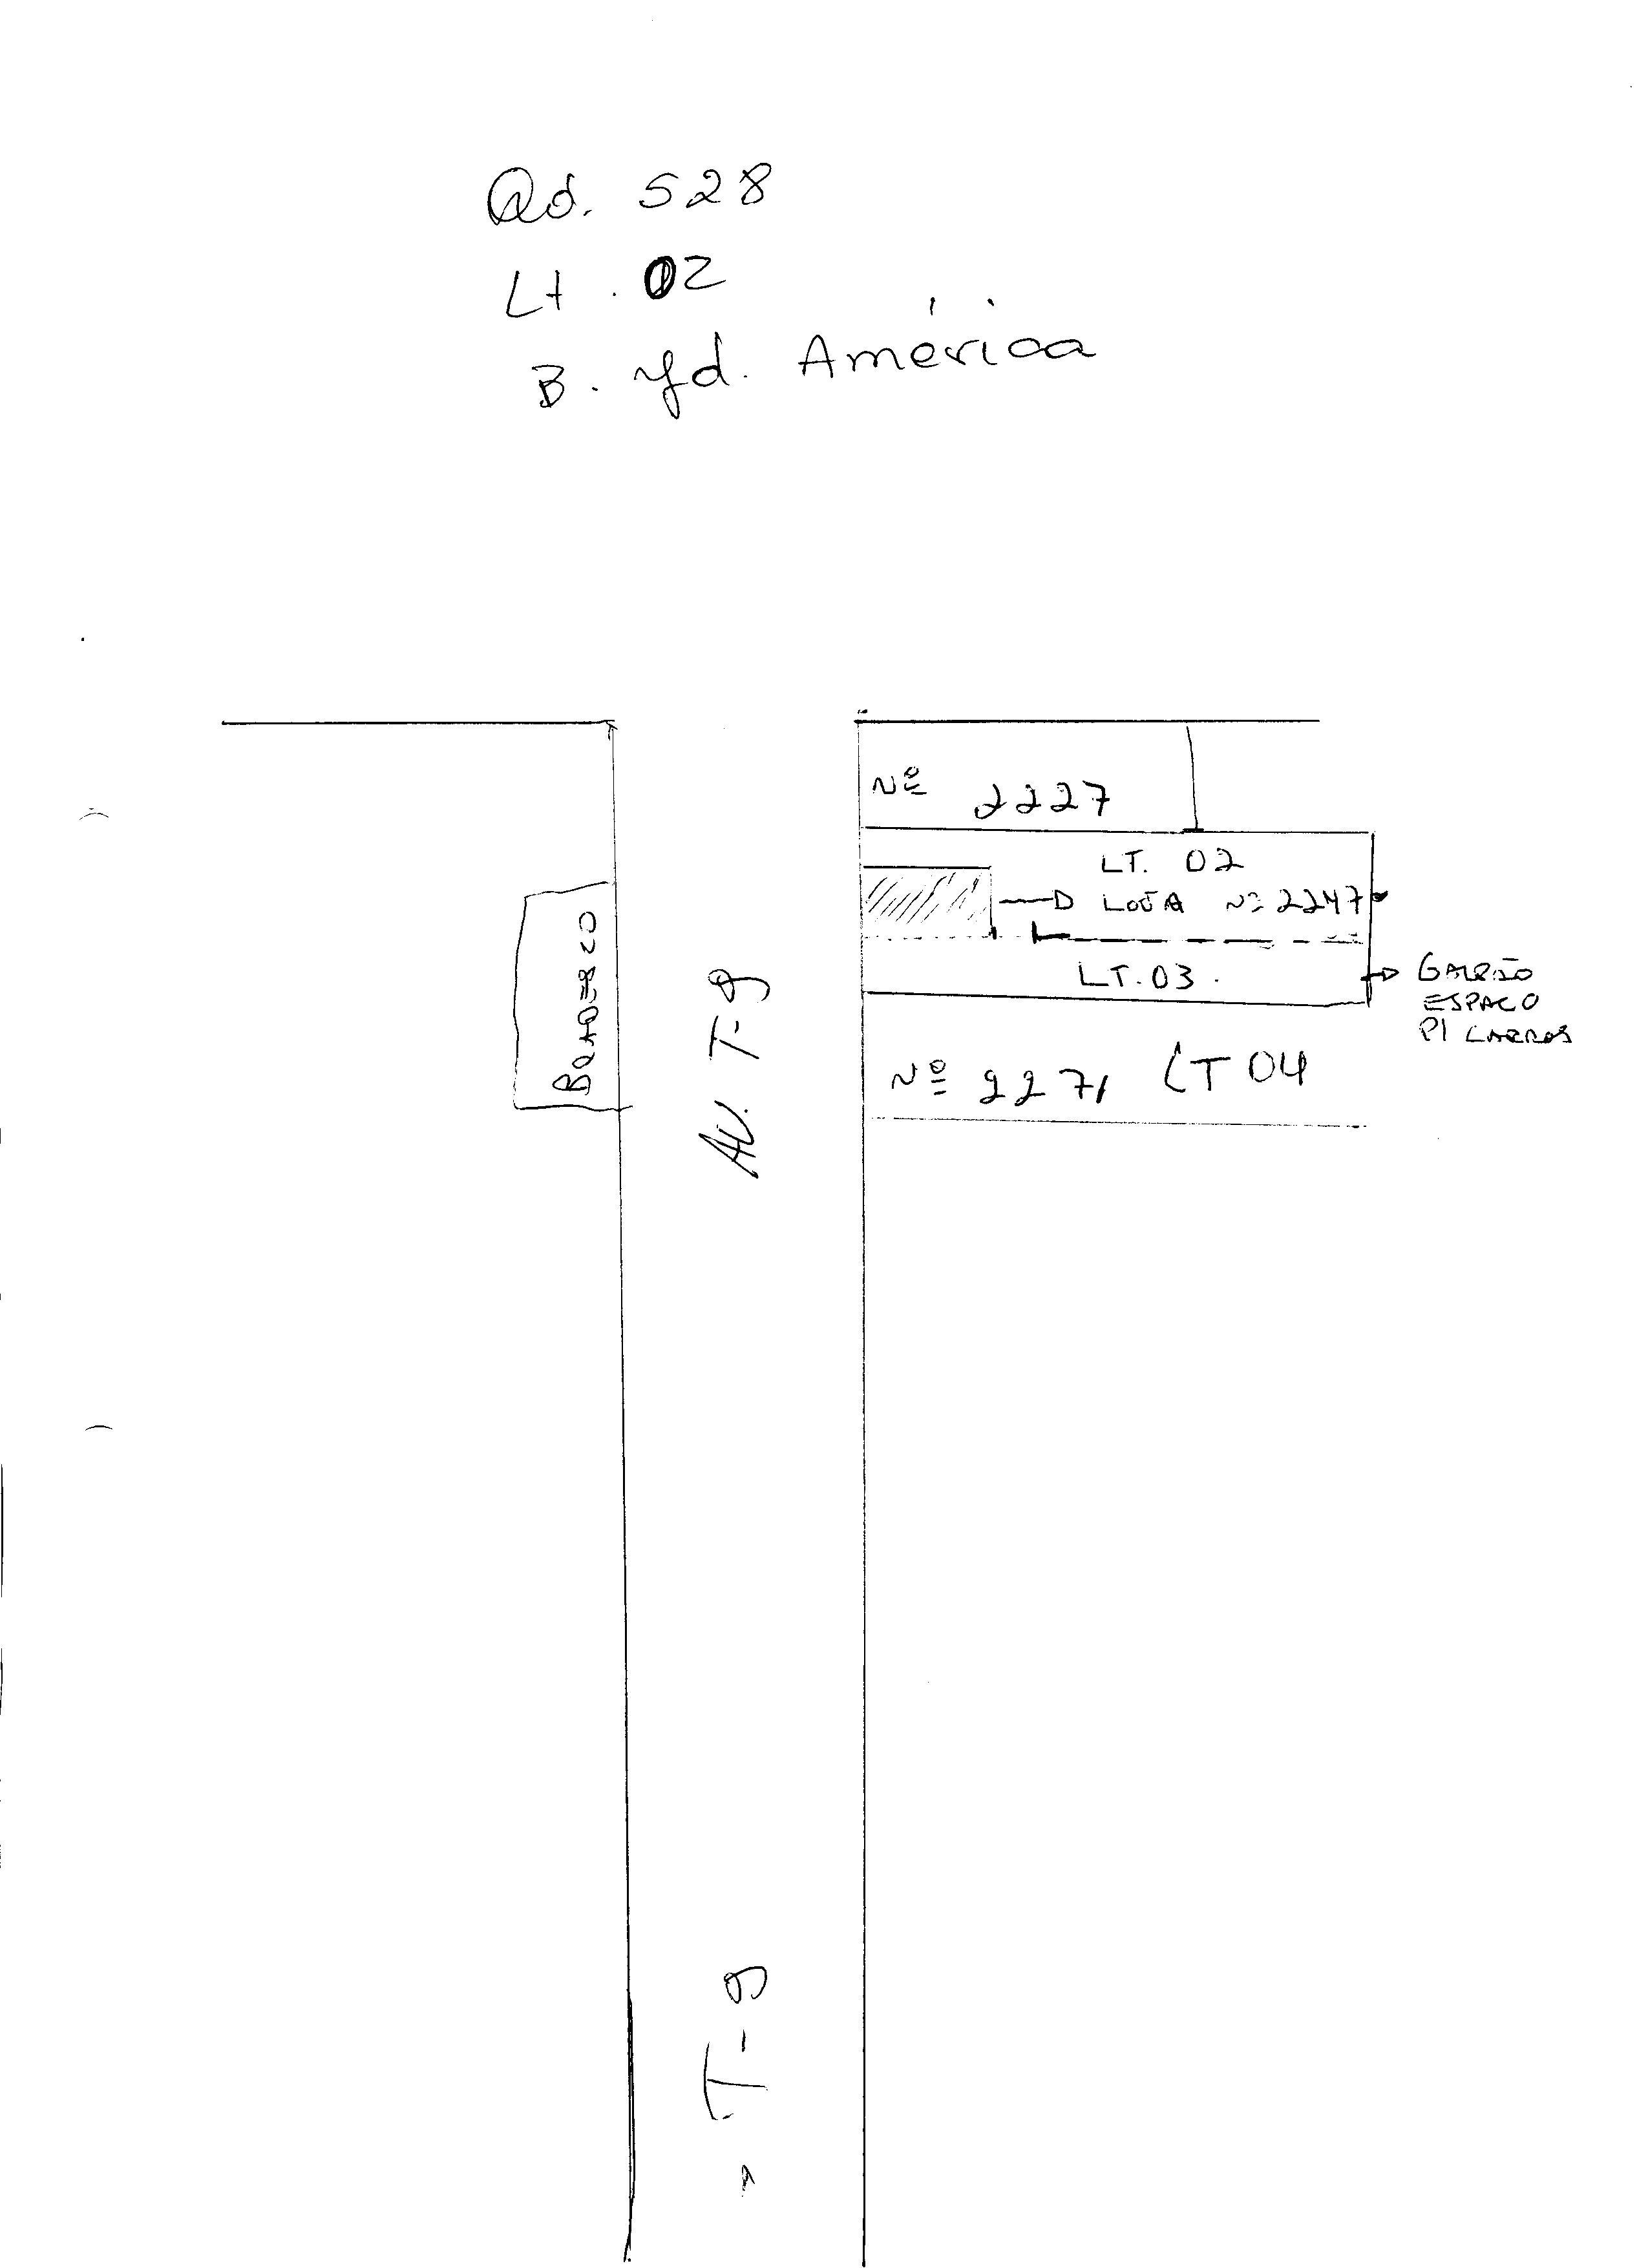 Qd. 528
Lt. 02
B. Jd. América
Nº 2227
LT. 02
LOJA Nº 2247
LT. 03.
GALPÃO
ESPACO
P/ CARROS
Nº 2271 LT 04
BRADESCO
AV. T-9
T-9